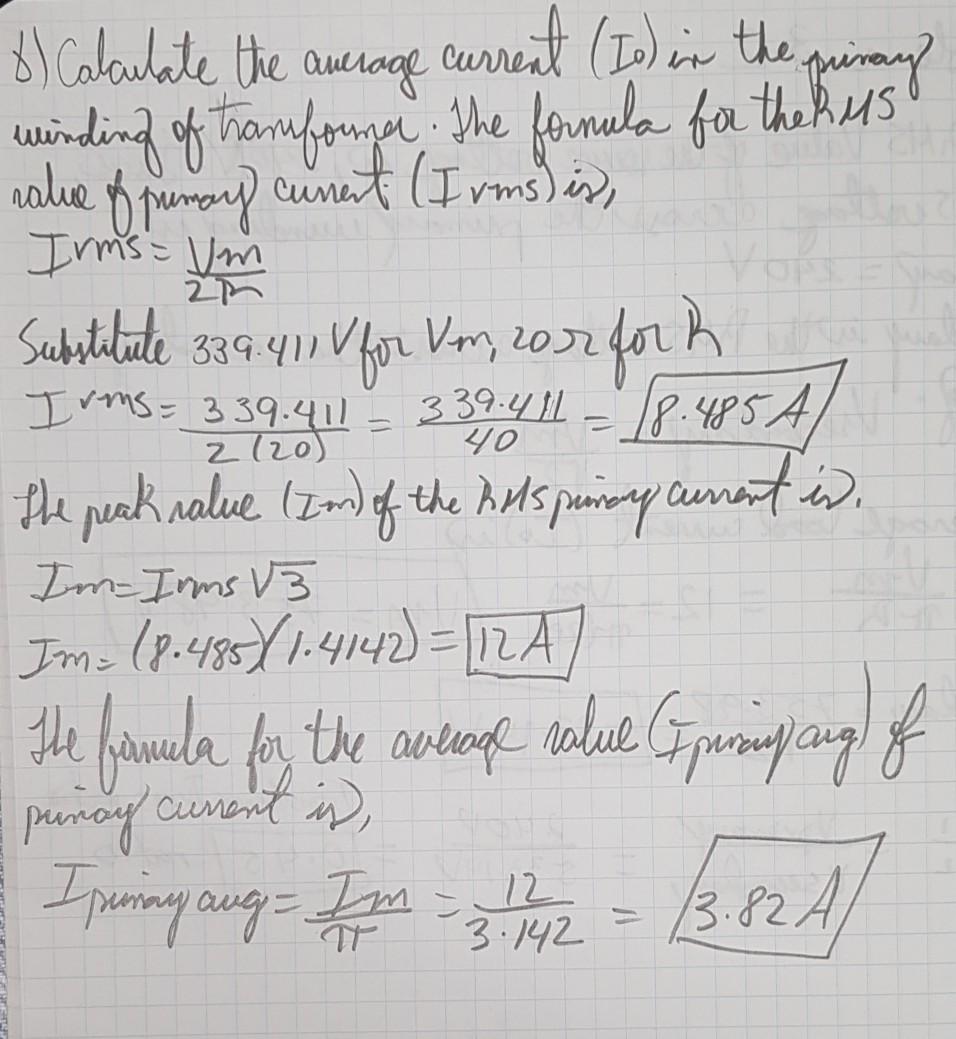 b) Calculate the average current (Io) in the primary
winding of transformer. The formula for the RMS
value of primary current (Irms) is,
Irms = Vm / 2R
Substitute 339.411 V for Vm, 20 Ω for R
Irms = 339.411 / 2(20) = 339.411 / 40 = 8.485 A
The peak value (Im) of the RMS primary current is.
Im = Irms √3
Im = (8.485)(1.4142) = 12 A
The formula for the average value (Iprimary avg) of
primary current is,
Iprimary avg = Im / π = 12 / 3.142 = 3.82 A